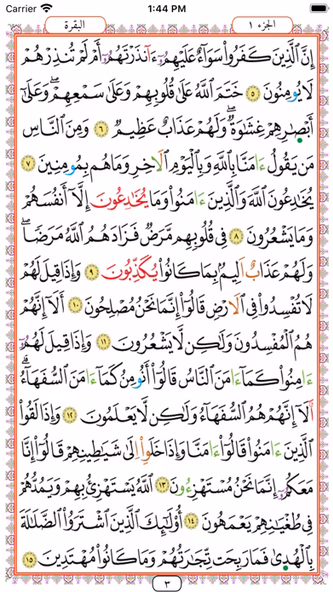 Carrier 1:44 PM
البقرة الجزء ١
إِنَّ ٱلَّذِينَ كَفَرُواْ سَوَآءٌ عَلَيْهِمُۥٓ ءَآنذَرْتَهُمُۥٓ أَمْ لَمْ تُنذِرْهُمْ
لَا يُومِنُونَ ٥ خَتَمَ ٱللَّهُ عَلَىٰ قُلُوبِهِمْ وَعَلَىٰ سَمْعِهِمْ وَعَلَىٰٓ
أَبْصَٰرِهِمْ غِشَٰوَةٌ وَلَهُمْ عَذَابٌ عَظِيمٌ ٦ وَمِنَ ٱلنَّاسِ
مَنْ يَقُولُ ءَامَنَّا بِٱللَّهِ وَبِٱلْيَوْمِ ٱلَاخِرِ وَمَا هُم بِمُومِنِينَ ٧
يُخَٰدِعُونَ ٱللَّهَ وَٱلَّذِينَ ءَامَنُواْ وَمَا يُخَٰدِعُونَ إِلَّآ أَنفُسَهُمْ
وَمَا يَشْعُرُونَ ٨ فِي قُلُوبِهِم مَّرَضٌ فَزَادَهُمُ ٱللَّهُ مَرَضًا
وَلَهُمْ عَذَابٌ اَلِيمٌ بِمَا كَانُواْ يُكَذِّبُونَ ٩ وَإِذَا قِيلَ لَهُمْ
لَا تُفْسِدُواْ فِي ٱلَارْضِ قَالُوٓاْ إِنَّمَا نَحْنُ مُصْلِحُونَ ١٠ أَلَآ إِنَّهُمْ
هُمُ ٱلْمُفْسِدُونَ وَلَٰكِن لَّا يَشْعُرُونَ ١١ وَإِذَا قِيلَ لَهُمُۥٓ
ءَامِنُواْ كَمَآ ءَامَنَ ٱلنَّاسُ قَالُوٓاْ أَنُومِنُ كَمَآ ءَامَنَ ٱلسُّفَهَآءُ
اَلَآ إِنَّهُمْ هُمُ ٱلسُّفَهَآءُ وَلَٰكِن لَّا يَعْلَمُونَ ١٢ وَإِذَا لَقُواْ
ٱلَّذِينَ ءَامَنُواْ قَالُوٓاْ ءَامَنَّا وَإِذَا خَلَوِاْ اِلَىٰ شَيَٰطِينِهِمْ قَالُوٓاْ إِنَّا
مَعَكُمُۥٓ إِنَّمَا نَحْنُ مُسْتَهْزِءُونَ ١٣ ٱللَّهُ يَسْتَهْزِئُ بِهِمْ وَيَمُدُّهُمْ
فِي طُغْيَٰنِهِمْ يَعْمَهُونَ ١٤ أُوْلَٰٓئِكَ ٱلَّذِينَ ٱشْتَرَوُاْ ٱلضَّلَٰلَةَ
بِٱلْهُدَىٰ فَمَا رَبِحَت تِّجَٰرَتُهُمْ وَمَا كَانُواْ مُهْتَدِينَ ١٥
٣